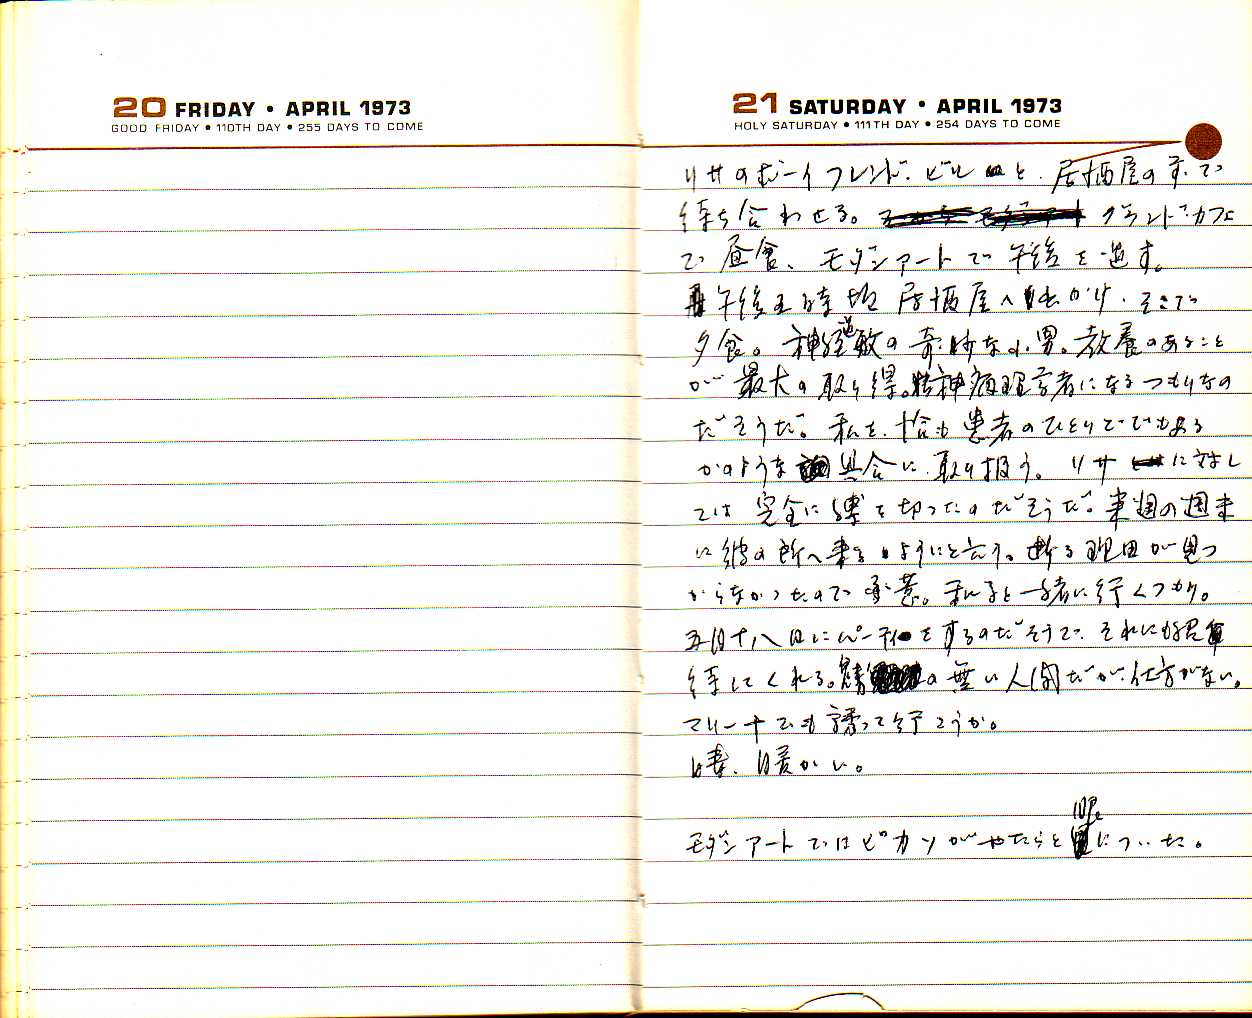 20 FRIDAY • APRIL 1973
GOOD FRIDAY • 110TH DAY • 255 DAYS TO COME
21 SATURDAY • APRIL 1973
HOLY SATURDAY • 111TH DAY • 254 DAYS TO COME
リサのボーイフレンド、ビルと、居酒屋の前で
待ち合わせる。グランド・カフェ
で昼食、モダンアートで午後を過す。
午後五時頃居酒屋へ出かけ、そこで
夕食。神経過敏の奇妙な小男。教養のあること
が最大の取り得。精神病理学者になるつもりなの
だそうだ。私を、恰も患者のひとりででもある
かのような具合に、取り扱う。リサに対し
ては完全に縁を切ったのだそうだ。来週の週末
に彼の所へ来るようにと言う。断る理由が見つ
からなかったので承諾。と一緒に行くつもり。
五月十八日にパーティをするのだそうで、それにも招
待してくれる。の無い人間だが、仕方がない。
マリーナでも誘って行こうか。
晴、暖かい。
モダンアートではピカソがやたらと眼についた。